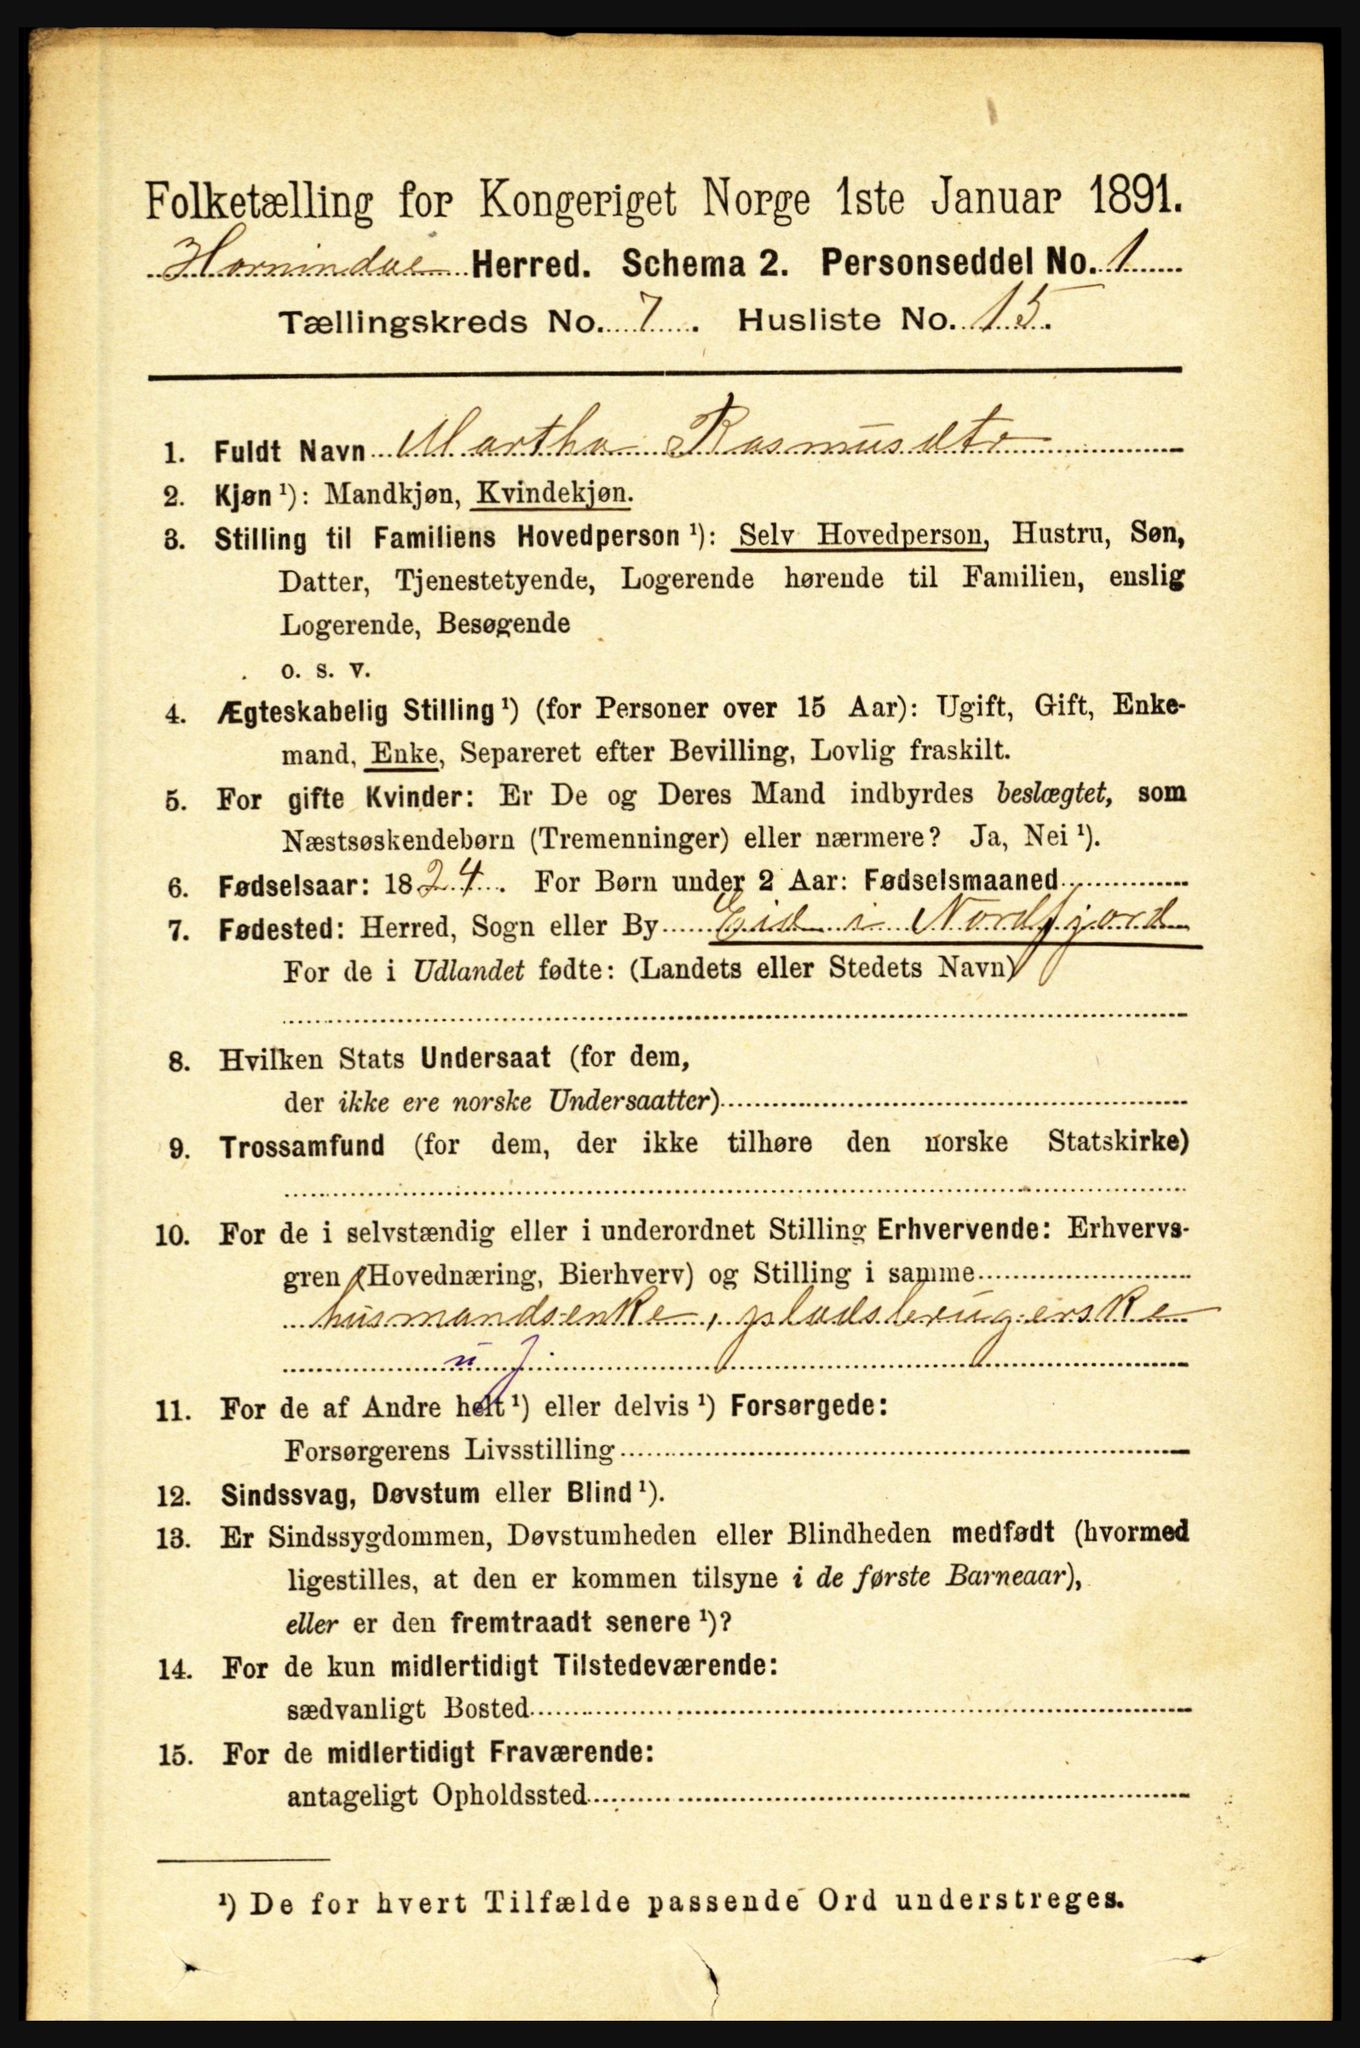 Folketælling for Kongeriget Norge 1ste Januar 1891.
Hornindal Herred. Schema 2. Personseddel No. 1
Tællingskreds No. 7. Husliste No. 15.
1. Fuldt Navn Martha Rasmusdtr
2. Kjøn ¹): Mandkjøn, Kvindekjøn.
3. Stilling til Familiens Hovedperson ¹): Selv Hovedperson, Hustru, Søn,
Datter, Tjenestetyende, Logerende hørende til Familien, enslig
Logerende, Besøgende
o. s. v.
4. Ægteskabelig Stilling ¹) (for Personer over 15 Aar): Ugift, Gift, Enke-
mand, Enke, Separeret efter Bevilling, Lovlig fraskilt.
5. For gifte Kvinder: Er De og Deres Mand indbyrdes beslægtet, som
Næstsøskendebørn (Tremenninger) eller nærmere? Ja, Nei ¹).
6. Fødselsaar: 1824. For Børn under 2 Aar: Fødselsmaaned
7. Fødested: Herred, Sogn eller By Eid i Nordfjord
For de i Udlandet fødte: (Landets eller Stedets Navn)
8. Hvilken Stats Undersaat (for dem,
der ikke ere norske Undersaatter)
9. Trossamfund (for dem, der ikke tilhøre den norske Statskirke)
10. For de i selvstændig eller i underordnet Stilling Erhvervende: Erhvervs-
gren (Hovednæring, Bierhverv) og Stilling i samme
husmandsenke, pladsbrugerske
u j.
11. For de af Andre helt ¹) eller delvis ¹) Forsørgede:
Forsørgerens Livsstilling
12. Sindssvag, Døvstum eller Blind ¹).
13. Er Sindssygdommen, Døvstumheden eller Blindheden medfødt (hvormed
ligestilles, at den er kommen tilsyne i de første Barneaar),
eller er den fremtraadt senere ¹)?
14. For de kun midlertidigt Tilstedeværende:
sædvanligt Bosted
15. For de midlertidigt Fraværende:
antageligt Opholdssted
¹) De for hvert Tilfælde passende Ord understreges.